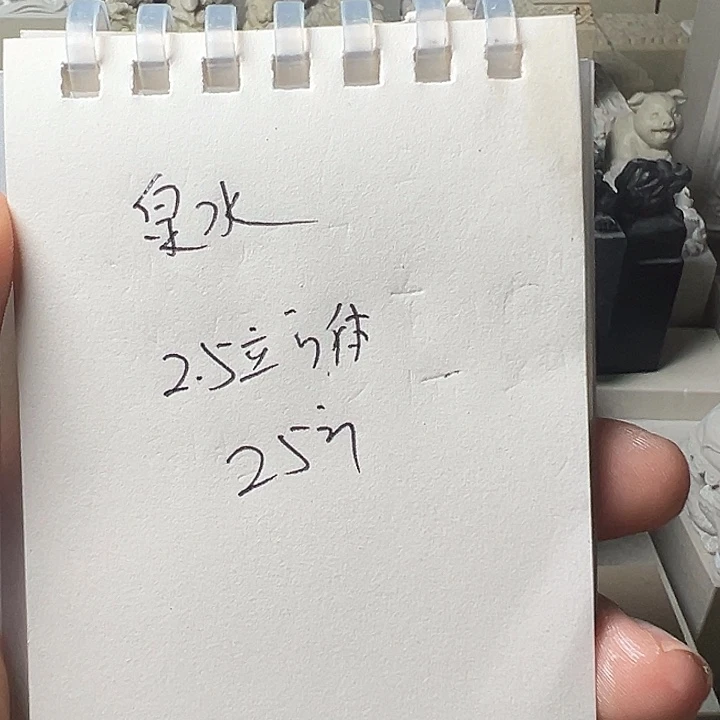 泉水
2.5立方体
25方